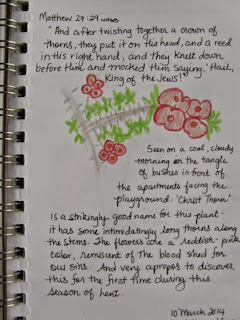 Matthew 27:29 NASB
"And after twisting together a crown of
thorns, they put it on His head, and a reed
in His right hand; and they knelt down
before Him and mocked Him saying, 'Hail,
King of the Jews!'"
Seen on a cool, cloudy
morning in the tangle
of bushes in front of
the apartments facing the
playground. 'Christ Thorn'
is a strikingly good name for this plant -
it has some intimidatingly long thorns along
the stems. The flowers are a reddish-pink
color, reminiscent of the blood shed for
our sins. And very apropos to discover
this for the first time during this
season of lent.
10 March 2014